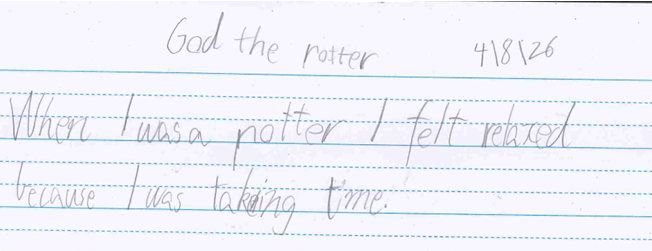 God the potter 4\8\26
When I was a potter I felt relaxed
because I was taking time.